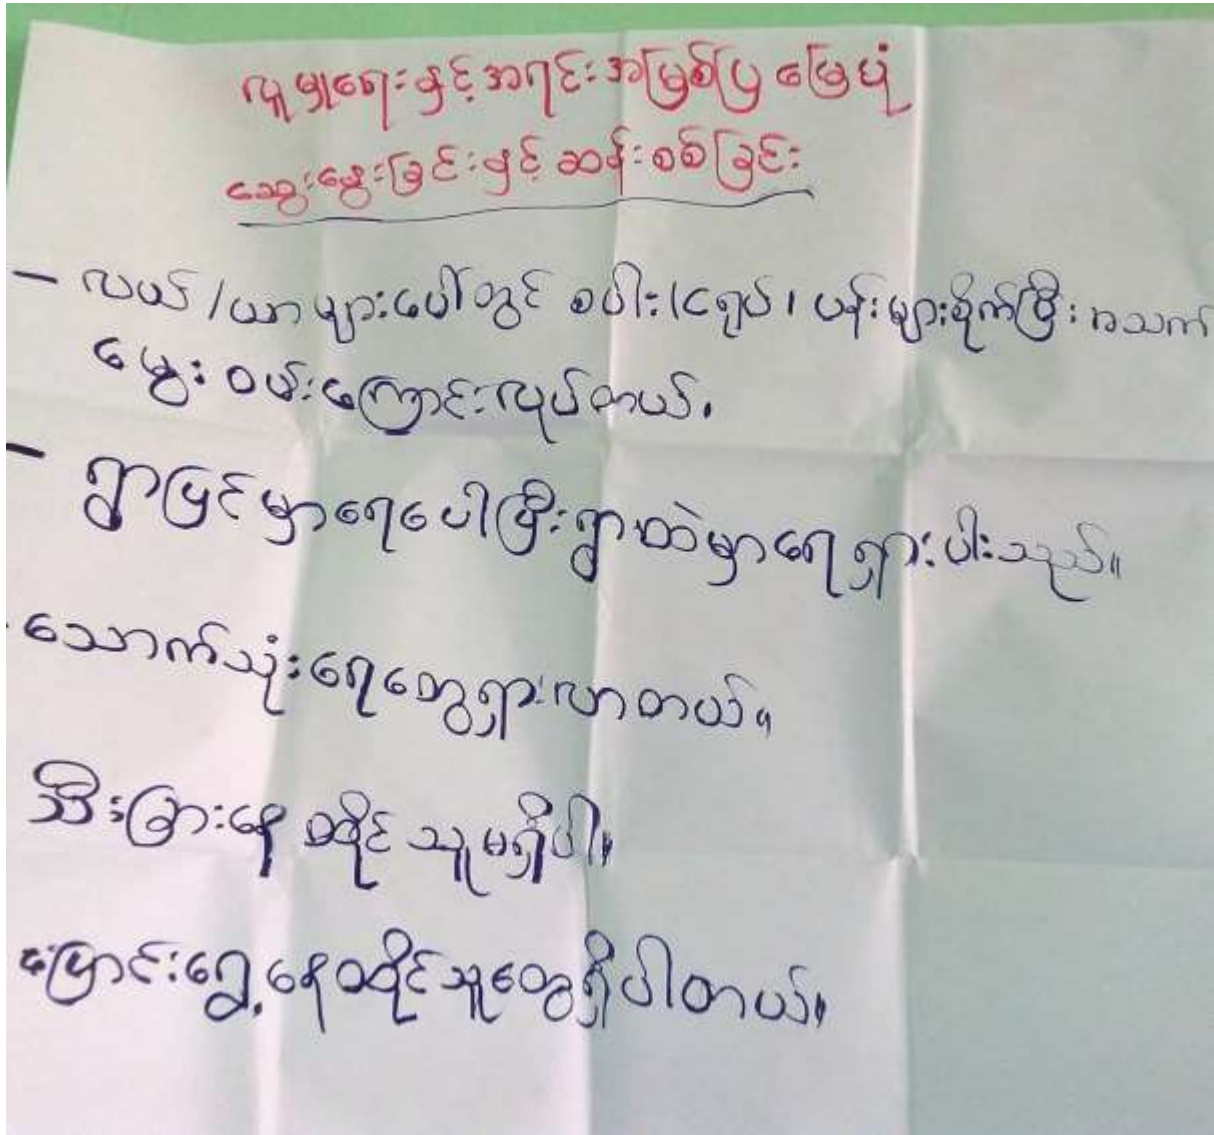 လူမှုရေးနှင့်အရင်းအမြစ်ပြ မြေပုံ
ဆွေးနွေးခြင်းနှင့် ဆန်းစစ်ခြင်း
– လယ်/ယာများပေါ်တွင် စပါး၊ ငရုပ်၊ ပန်းများစိုက်ပြီး အသက်
မွေး ဝမ်းကြောင်းလုပ်တယ်။
– ရွာပြင်မှာရေပေါပြီးရွာထဲမှာရေရှားပါးသည်။
- သောက်သုံးရေတွေရှားလာတယ်။
သီးခြားနေထိုင်သူမရှိပါ။
ပြောင်းရွှေ့နေထိုင်သူတွေရှိပါတယ်။